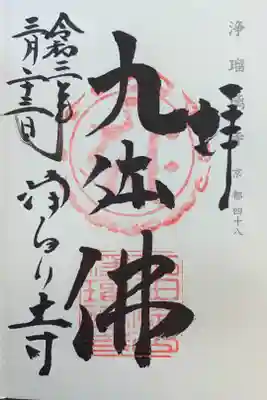 浄瑠璃寺 京都四十八
拝
九体佛
浄るり寺
令和三年
三月二十三日